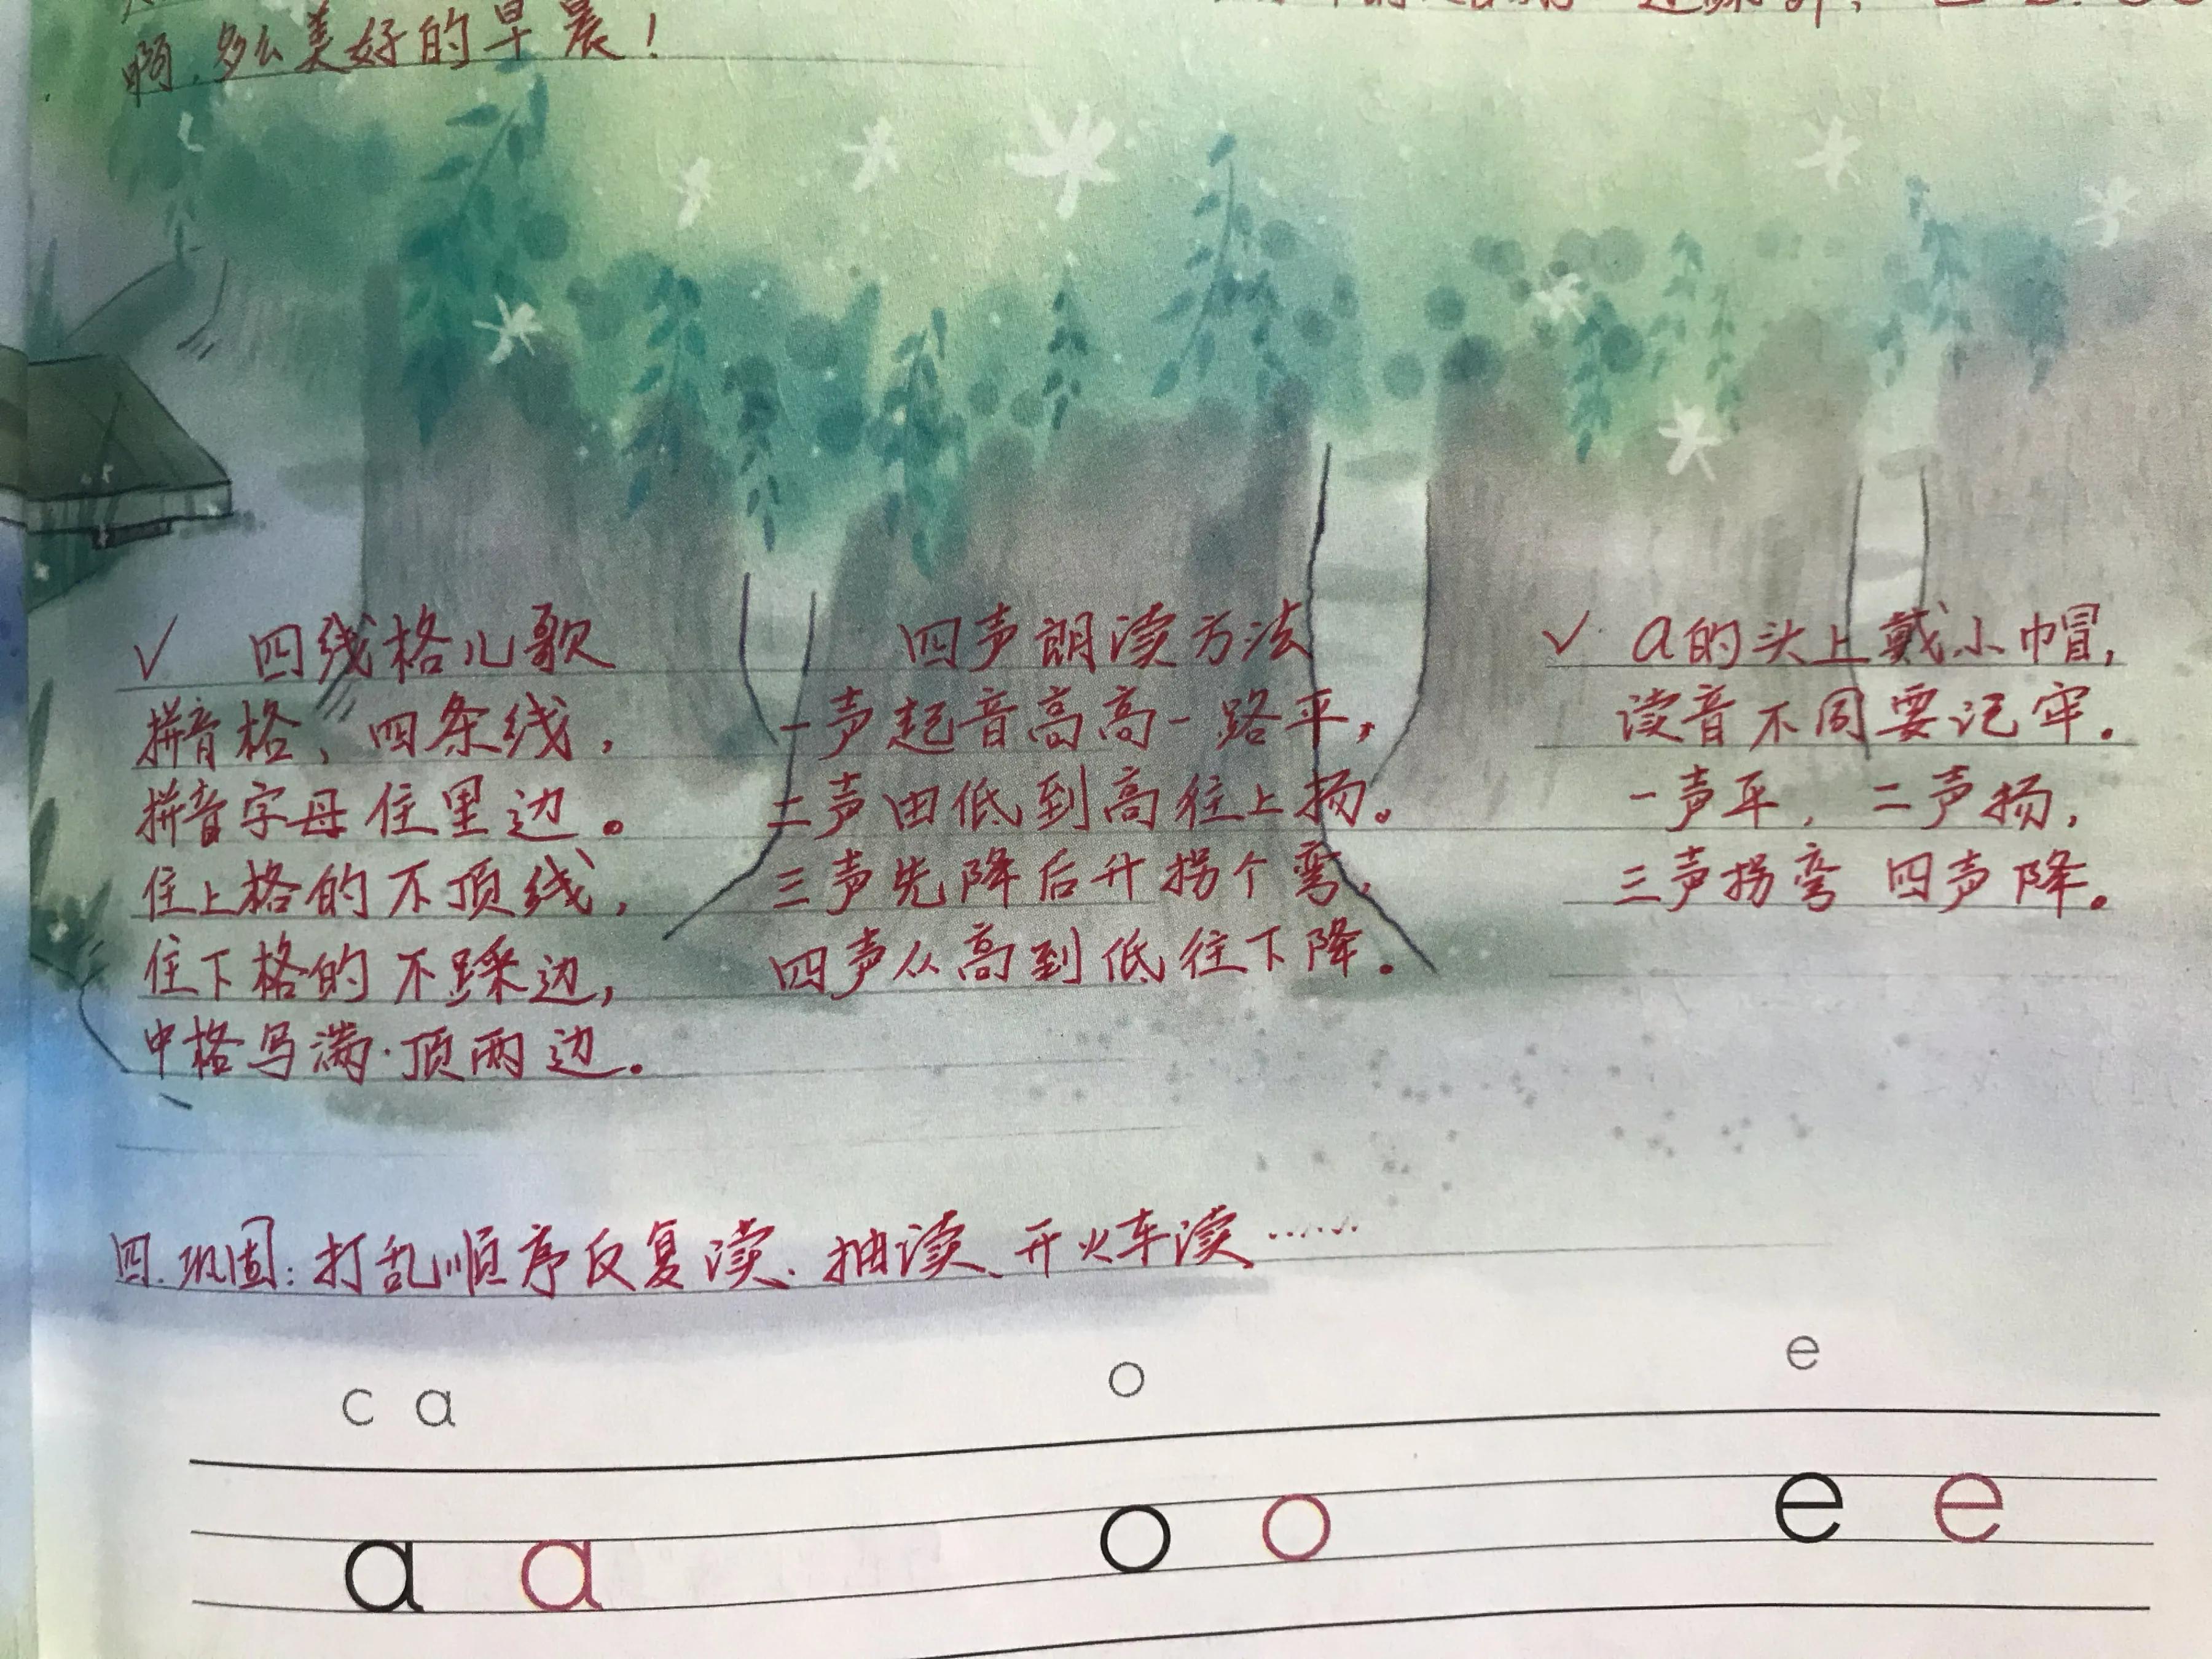 啊,多么美好的早晨!
✓ 四线格儿歌
拼音格、四条线,
拼音字母住里边。
住上格的不顶线,
住下格的不踩边,
中格写满·顶两边。
四声朗读方法
一声起音高高一路平,
二声由低到高往上扬。
三声先降后升拐个弯,
四声从高到低往下降。
✓ a的头上戴小帽,
读音不同要记牢.
一声平, 二声扬,
三声拐弯 四声降。
四.巩固:打乱顺序反复读、抽读、开火车读……
c a o e
a a o o e e